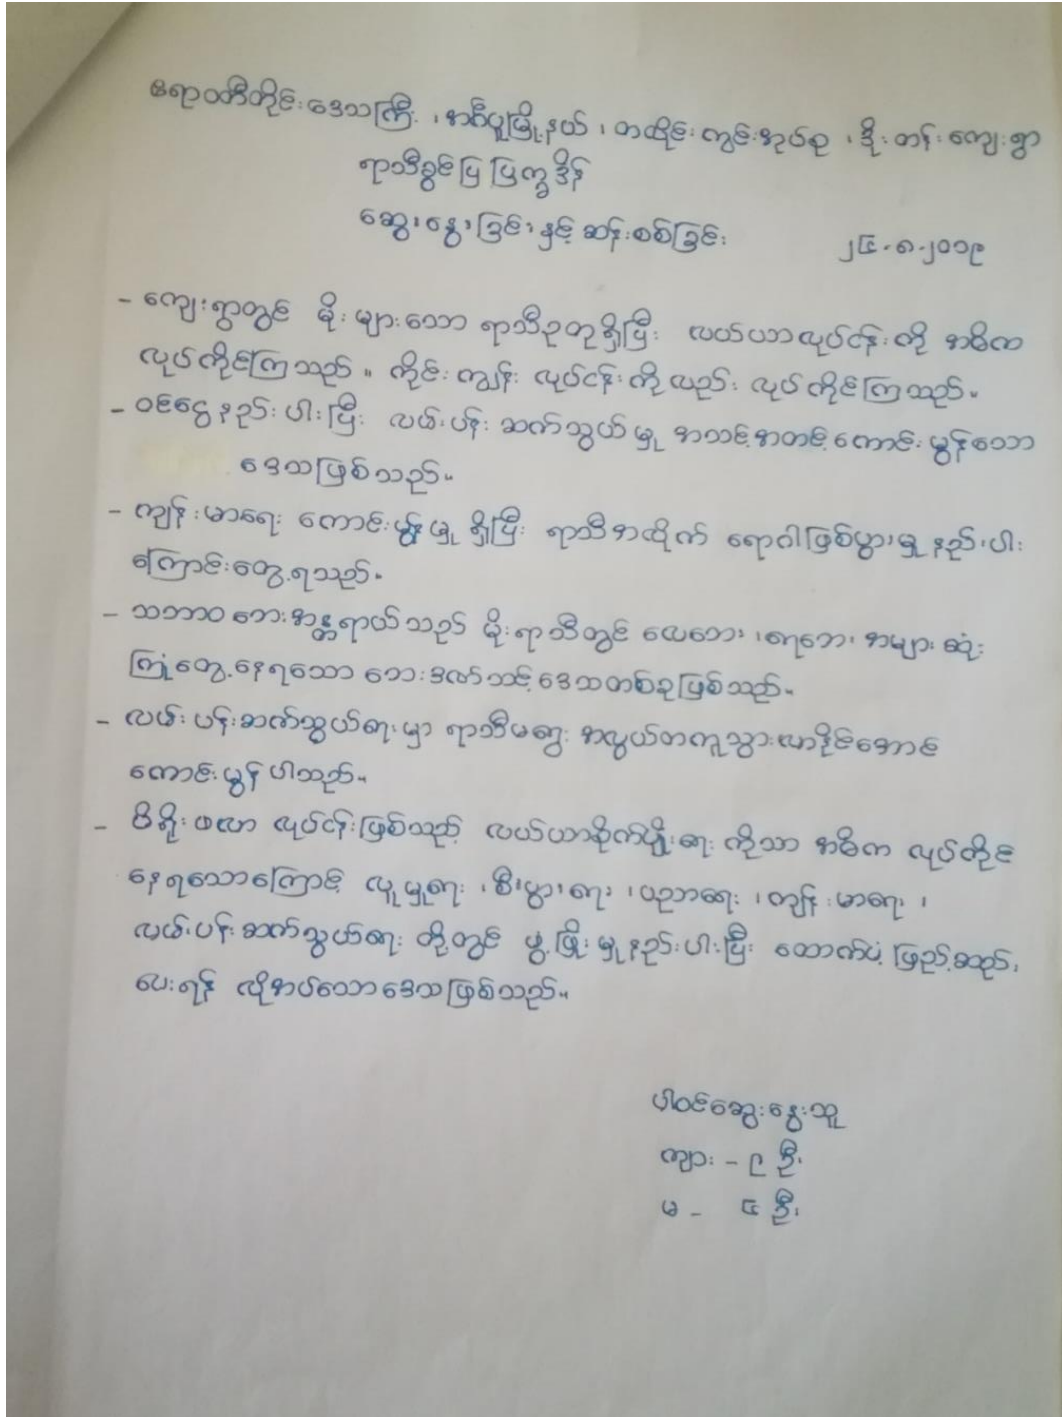 ဧရာဝတီတိုင်းဒေသကြီး ၊ အင်္ဂပူမြို့နယ် ၊ တထိုင်းကွင်းအုပ်စု ၊ ဒိုးတန်းကျေးရွာ
ရာသီခွင်ပြ ပြက္ခဒိန်
ဆွေးနွေးခြင်းနှင့် ဆန်းစစ်ခြင်း ၂၄-၈-၂၀၁၉
- ကျေးရွာတွင် မိုးများသော ရာသီဥတုရှိပြီး လယ်ယာလုပ်ငန်းကို အဓိက
လုပ်ကိုင်ကြသည်။ ကိုင်းကျွန်း လုပ်ငန်းကိုလည်း လုပ်ကိုင်ကြသည်။
- ဝင်ငွေနည်းပါးပြီး လမ်းပန်းဆက်သွယ်မှု အသင့်အတင့်ကောင်းမွန်သော
ဒေသဖြစ်သည်။
- ကျန်းမာရေး ကောင်းမွန်မှု ရှိပြီး ရာသီအလိုက် ရောဂါဖြစ်ပွားမှုနည်းပါး
ကြောင်းတွေ့ရသည်။
- သဘာဝဘေးအန္တရာယ်သည် မိုးရာသီတွင် လေဘေး ၊ရေဘေး အများဆုံး
ကြုံတွေ့နေရသော ဘေးဒဏ်သင့်ဒေသတစ်ခုဖြစ်သည်။
- လမ်းပန်းဆက်သွယ်ရေးမှာ ရာသီမရွေး အလွယ်တကူသွားလာနိုင်အောင်
ကောင်းမွန်ပါသည်။
- မိရိုးဖလာ လုပ်ငန်းဖြစ်သည့် လယ်ယာစိုက်ပျိုးရေးကိုသာ အဓိက လုပ်ကိုင်
နေရသောကြောင့် လူမှုရေး ၊စီးပွားရေး ၊ပညာရေး ၊ကျန်းမာရေး ၊
လမ်းပန်းဆက်သွယ်ရေး တို့တွင် ဖွံ့ဖြိုးမှုနည်းပါးပြီး ထောက်ပံ့ ဖြည့်ဆည်း
ပေးရန် လိုအပ်သောဒေသဖြစ်သည်။
ပါဝင်ဆွေးနွေးသူ
ကျား - ၉ ဦး
မ - ၄ ဦး